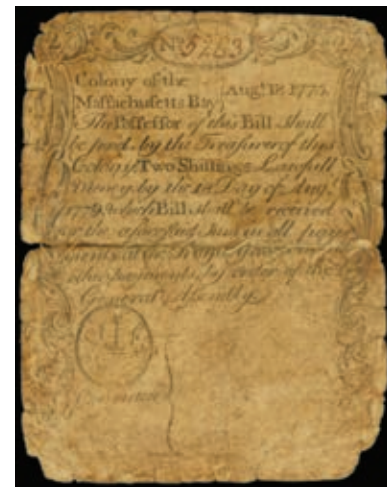 2 No 5263 2
Colony of the
Augt. 18. 1775.
Massachusetts Bay
The Possessor of this Bill shall
be paid by the Treasurer of this
Colony Two Shillings Lawfull
Money by the 18 Day of Aug.
1779. which Bill shall be received
for the aforesaid Sum in all pay
ments at the Treasury and in
other payments by order of the
General Assembly
Committee